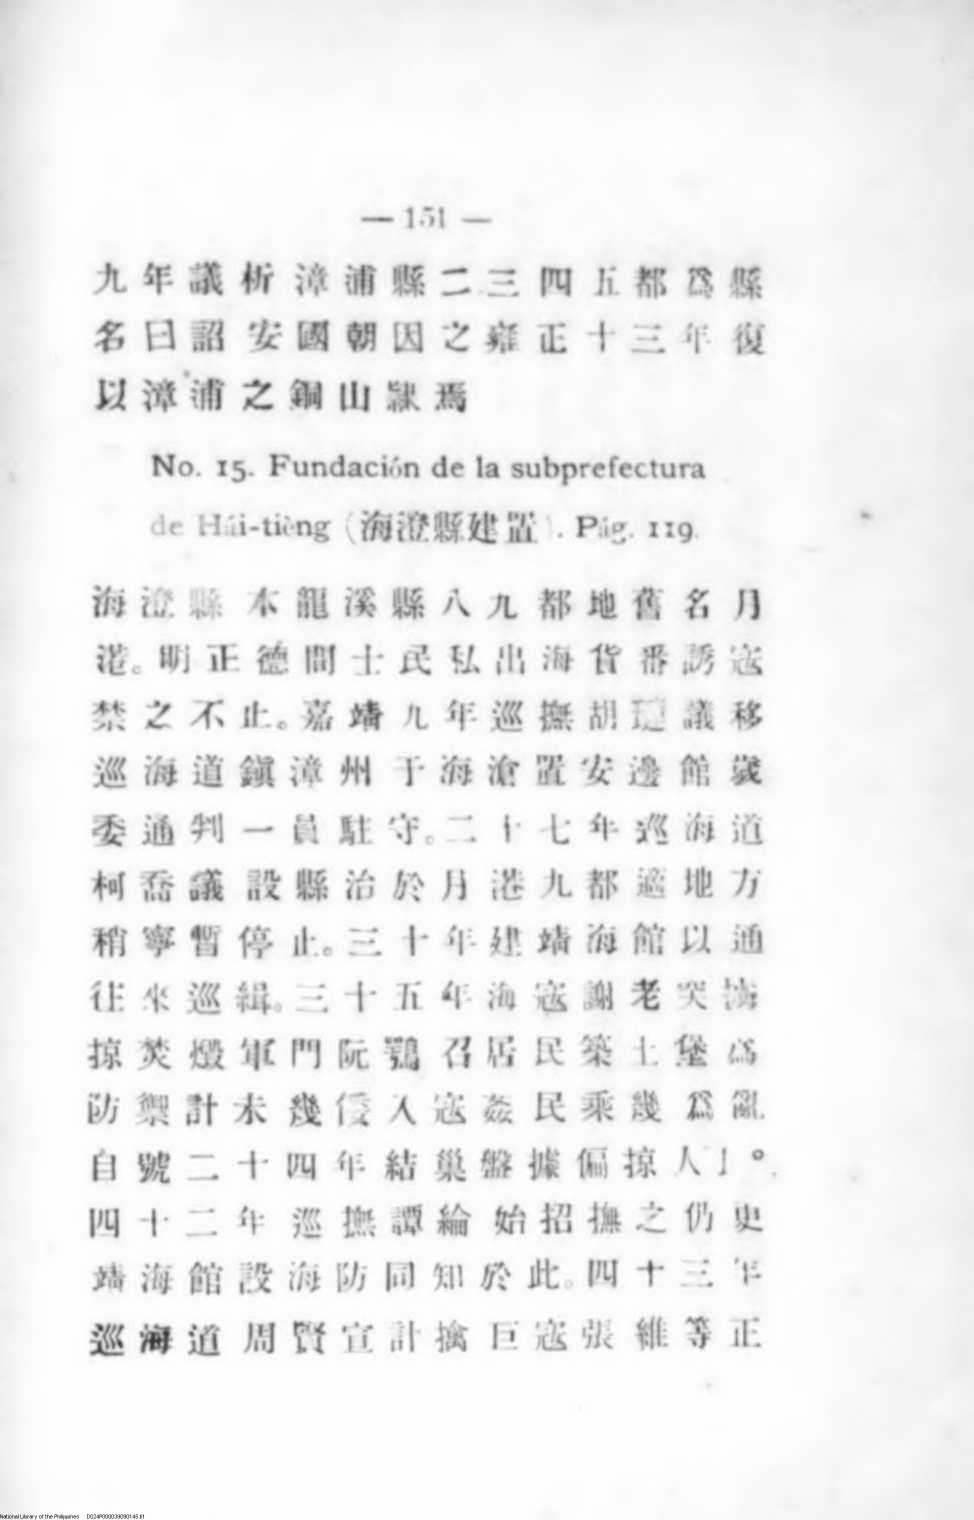 — 151 —
九年議析漳浦縣二三四五都爲縣
名曰詔安國朝因之雍正十三年復
以漳浦之銅山隸焉
No. 15. Fundación de la subprefectura
de Hái-tièng (海澄縣建置). Pág. 119.
海澄縣本龍溪縣八九都地舊名月
港。明正德間士民私出海貨番誘寇
禁之不止。嘉靖九年巡撫胡璉議移
巡海道鎭漳州于海滄置安邊館歲
委通判一員駐守。二十七年巡海道
柯喬議設縣治於月港九都適地方
稍寧暫停止。三十年建靖海館以通
往來巡緝。三十五年海寇謝老突
掠焚燬軍門阮鶚召居民築土堡爲
防禦計未幾倭入寇姦民乘幾爲亂
自號二十四年結巢盤據偏掠人
四十二年巡撫譚綸始招撫之仍更
靖海館設海防同知於此。四十三年
巡海道周賢宣計擒巨寇張維等正
National Library of the Philippines